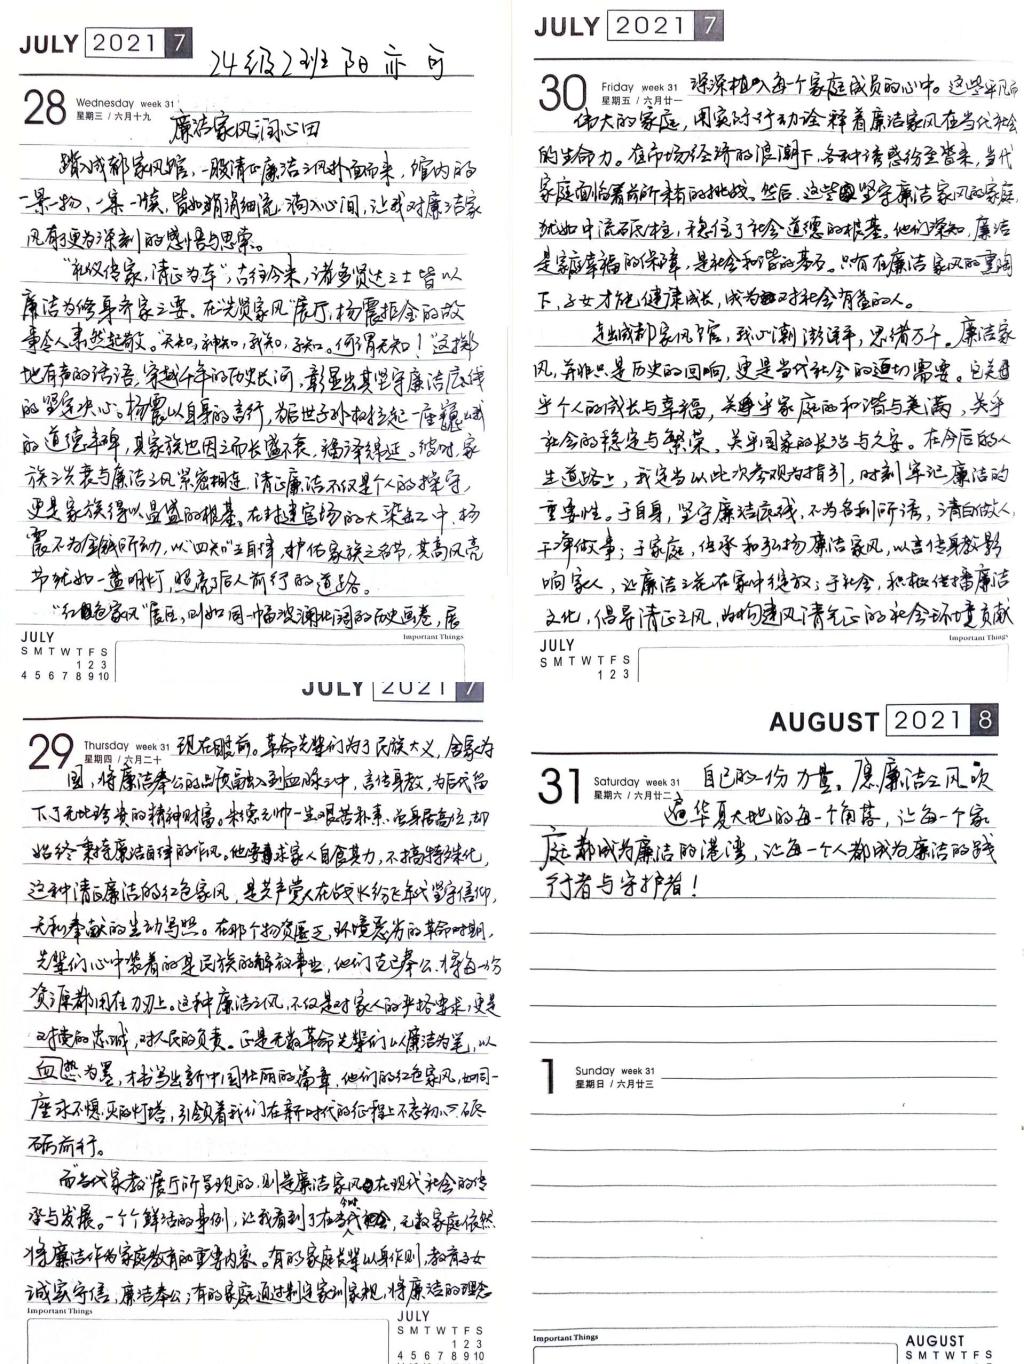 JULY 2021 7
24级2班 阳亦可
28 Wednesday week 31
星期三 / 六月十九
廉洁家风润心田
踏入成都家风馆，一股清正廉洁之风扑面而来，馆内的
一景一物、一集一牍，皆如涓涓细流，淌入心间，让我对廉洁家
风有了更为深刻的感悟与思索。
“礼仪传家，清正为本”，古往今来，诸多贤达之士皆以
廉洁为修身齐家之要。在“先贤家风”展厅，杨震拒金的故
事令人肃然起敬。“天知，神知，我知，子知。何谓无知！”这掷
地有声的话语，穿越千年的历史长河，彰显出其坚守廉洁底线
的坚定决心。杨震以自身的言行，为后世子孙树立起一座巍峨
的道德丰碑，其家族也因之而长盛不衰，福泽绵延。彼时，家
族之兴衰与廉洁之风紧密相连，清正廉洁不仅是个人的操守，
更是家族得以昌盛的根基。在封建官场的大染缸中，杨
震不为金钱所动，以“四知”立自律，护佑家族之名节，其高风亮
节犹如一盏明灯，照亮了后人前行的道路。
“红色家风”展区，则如同一幅波澜壮阔的历史画卷，展
JULY
S M T W T F S
1 2 3
4 5 6 7 8 9 10
Important Things
JULY 2021 7
29 Thursday week 31
星期四 / 六月二十
现在眼前。革命先辈们为了民族大义，舍家为
国，将廉洁奉公的品质融入到血脉之中，言传身教，为后代留
下了无比珍贵的精神财富。朱德元帅一生艰苦朴素，虽身居高位，却
始终秉持廉洁自律的作风。他要求家人自食其力，不搞特殊化，
这种清正廉洁的红色家风，是共产党人在战火纷飞年代坚守信仰，
无私奉献的生动写照。在那个物资匮乏，环境恶劣的革命时期，
先辈们心中装着的是民族的解放事业，他们克己奉公，将每一份
资源都用在刀刃上。这种廉洁之风，不仅是对家人的严格要求，更是
对党的忠诚，对人民的负责。正是无数革命先辈们以廉洁为笔，以
血热为墨，才书写出新中国壮丽的篇章，他们的红色家风，如同一
座永不熄灭的灯塔，引领着我们在新时代的征程上不忘初心，砥
砺前行。
而“当代家教”展厅所呈现的，则是廉洁家风在现代社会的传
承与发展。一个个鲜活的事例，让我看到了在当今时代，无数家庭依然
将廉洁作为家庭教育的重要内容。有的家庭长辈以身作则，教育子女
诚实守信，廉洁奉公；有的家庭通过制定家训家规，将廉洁的理念
Important Things
JULY
S M T W T F S
1 2 3
4 5 6 7 8 9 10
JULY 2021 7
30 Friday week 31
星期五 / 六月廿一
深深植入每一个家庭成员的心中。这些平凡而
伟大的家庭，用实际行动诠释着廉洁家风在当代社会
的生命力。在市场经济的浪潮下，各种诱惑纷至沓来，当代
家庭面临着前所未有的挑战。然后，这些坚守廉洁家风的家庭，
犹如中流砥柱，稳住了社会道德的根基。他们深知，廉洁
是家庭幸福的保障，是社会和谐的基石。只有在廉洁家风的熏陶
下，子女才能健康成长，成为对社会有益的人。
走出成都家风馆，我心潮澎湃，思绪万千。廉洁家
风，并非只是历史的回响，更是当代社会的迫切需要。它关
乎个人的成长与幸福，关乎家庭的和谐与美满，关乎
社会的稳定与繁荣，关乎国家的长治与久安。在今后的人
生道路上，我定当以此次参观为指引，时刻牢记廉洁的
重要性。于自身，坚守廉洁底线，不为名利所诱，清白做人，
干净做事；于家庭，传承和弘扬廉洁家风，以言传身教影
响家人，让廉洁之花在家中绽放；于社会，积极传播廉洁
文化，倡导清正之风，为构建风清气正的社会环境贡献
JULY
S M T W T F S
1 2 3
Important Things
AUGUST 2021 8
31 Saturday week 31
星期六 / 六月廿二
自己的一份力量。愿廉洁之风吹
遍华夏大地的每一个角落，让每一个家
庭都成为廉洁的港湾，让每一个人都成为廉洁的践
行者与守护者！
1 Sunday week 31
星期日 / 六月廿三
Important Things
AUGUST
S M T W T F S